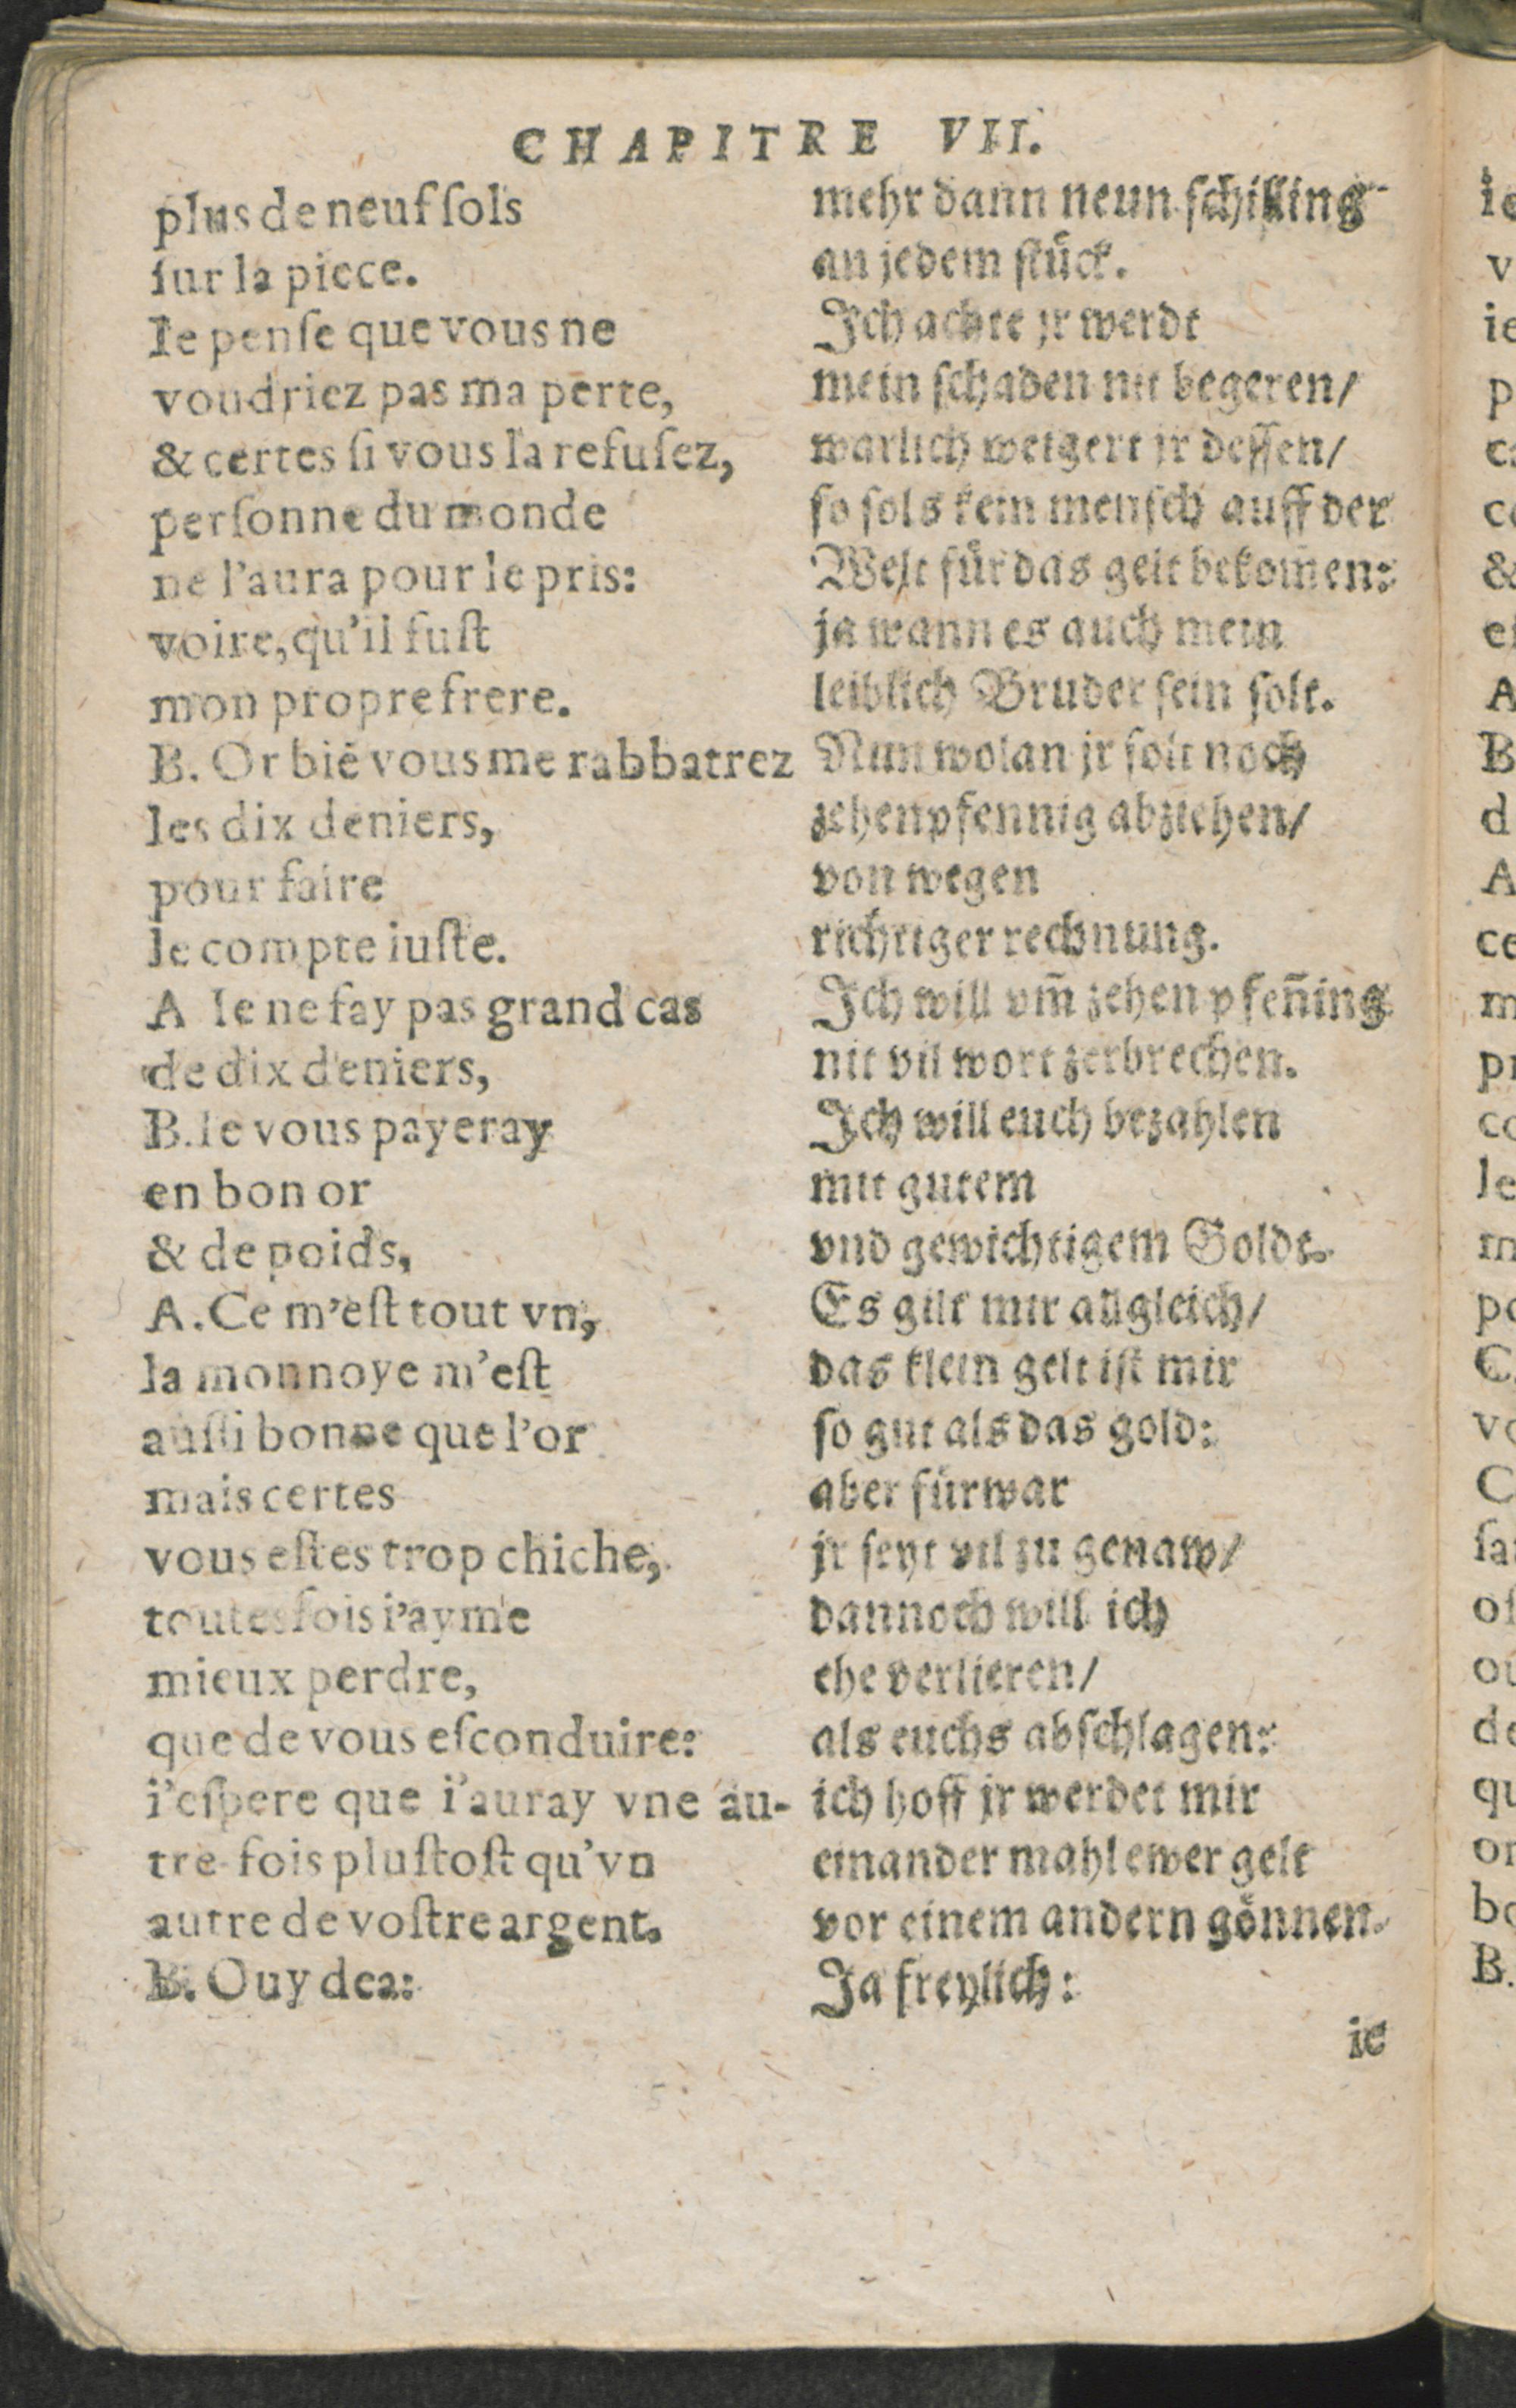 CHAPITRE VII.
plus de neuf ſols
ſur la piece.
Ie penſe que vous ne
voudriez pas ma perte,
& certes ſi vous la refuſez,
perſonne du monde
ne l'aura pour le pris:
voire, qu'il fuſt
mon propre frere.
B. Or biẽ vous me rabbatrez
les dix deniers,
pour faire
le compte iuſte.
A Ie ne fay pas grand cas
de dix deniers,
B. Ie vous payeray
en bon or
& de poids,
A. Ce m'eſt tout vn,
la monnoye m'eſt
auſſi bonne que l'or
mais certes
vous eſtes trop chiche,
toutesfois i'ayme
mieux perdre,
que de vous eſconduire:
i'eſpere que i'auray vne au-
tre-fois pluſtoſt qu'vn
autre de voſtre argent.
B. Ouy dea:
mehr dann neun ſchilling
an jedem ſtuͤck.
Ich achte jr werdt
mein ſchaden nit begeren/
warlich weigert jr deſſen/
ſo ſols kein menſch auff der
Welt fuͤr das gelt bekom̃en:
ja wann es auch mein
leiblich Bruder ſein ſolt.
Nun wolan jr ſolt noch
zehen pfennig abziehen/
von wegen
richtiger rechnung.
Ich will vm̃ zehen pfeñing
nit vil wort zerbrechen.
Ich will euch bezahlen
mit gutem
vnd gewichtigem Goldt.
Es gilt mir allgleich/
das klein gelt iſt mir
ſo gut als das gold:
aber fürwar
jr ſeyt vil zu genaw/
dannoch will ich
ehe verlieren/
als euchs abſchlagen:
ich hoff jr werdet mir
einander mahl ewer gelt
vor einem andern goͤnnen.
Ja freylich:
ie